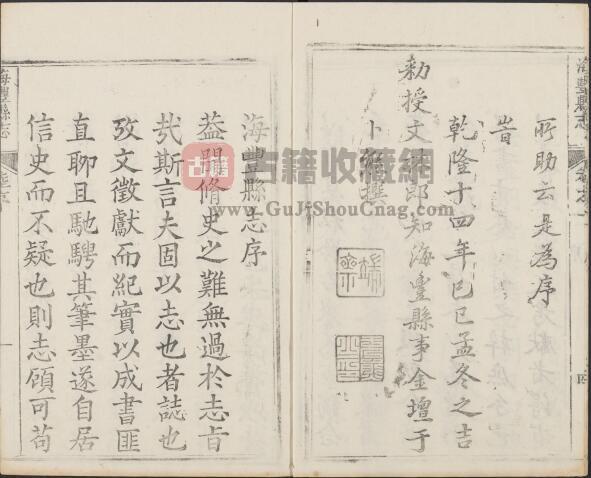 海豐縣志
四
所助云是為序
旹
乾隆十四年己巳孟冬之吉
勑授文林郎知海豐縣事金壇于
卜熊撰
海豐縣志序
蓋聞脩史之難無過於志旨
哉斯言夫固以志也者誌也
攷文徵獻而紀實以成書匪
直聊且馳騁其筆墨遂自居
信史而不疑也則志顧可苟
海豐縣志
古籍
古籍收藏网
www.GuJiShouCnag.com